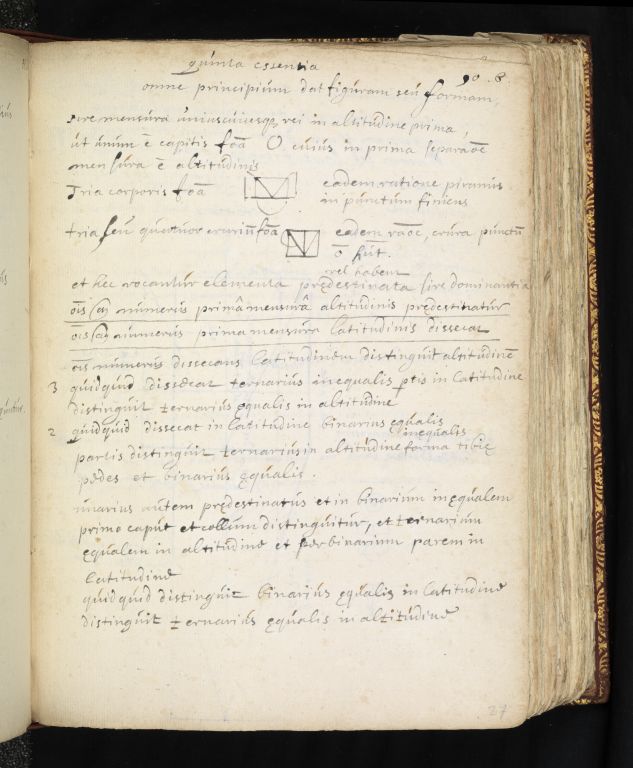 quinta essentia
90 . 8.
omne principium dat figuram seú formam,
sive mensura uniuscuiusque rei in altitúdine prima,
út únum ē capitis foā O cuius in prima separaōe
mensúra ē altitúdinis
Tria corporis foā eadem ratione piramis
in púnctum finiens
tria seú quatuor crurium foā eadem raōe, crúra púnctū
ō hūt.
vel habent
et hec vocantúr elementa prędestinata sive dominantia
oīs numerús primā mensurā altitúdinis prędestinatúr
oīs numerús prima mensura latitudinis dissecat
oīs numerús dissecans latitúdinem distinguit altitúdinē
3 quidquid dissecat ternariús inequalis ptis in latitúdine
distinguit ternariús ęqualis in altitúdine
2 quidquid dissecat in latitúdine binariús ęqualis
inęqualis
partis distinguit ternariús in altitúdine forma tibię
pędes et binariús ęqualis.
unariús aútem prędestinatús et in binariúm inęqualem
primo capút et collúm distinguitúr, et ternariúm
ęqualem in altitúdine et per binariúm parem in
latitúdine
quidquid distinguit binariús ęqualis in latitúdine
distinguit ternariús ęqualis in altitúdine
27